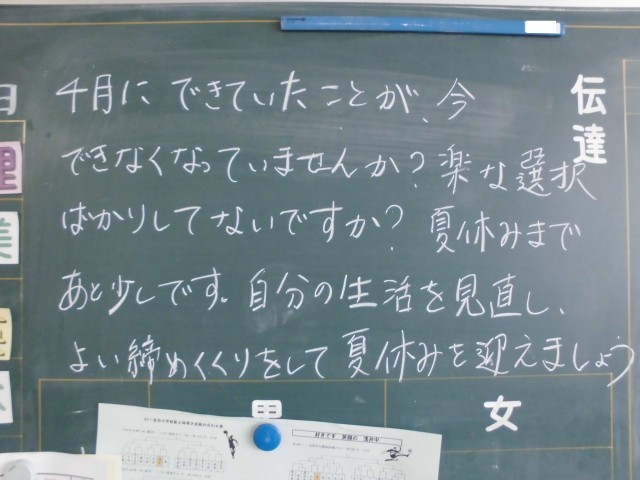 伝達
4月にできていたことが、今
できなくなっていませんか?楽な選択
ばかりしてないですか?夏休みまで
あと少しです。自分の生活を見直し、
よい締めくくりをして夏休みを迎えましょう
日
理
美
男
女